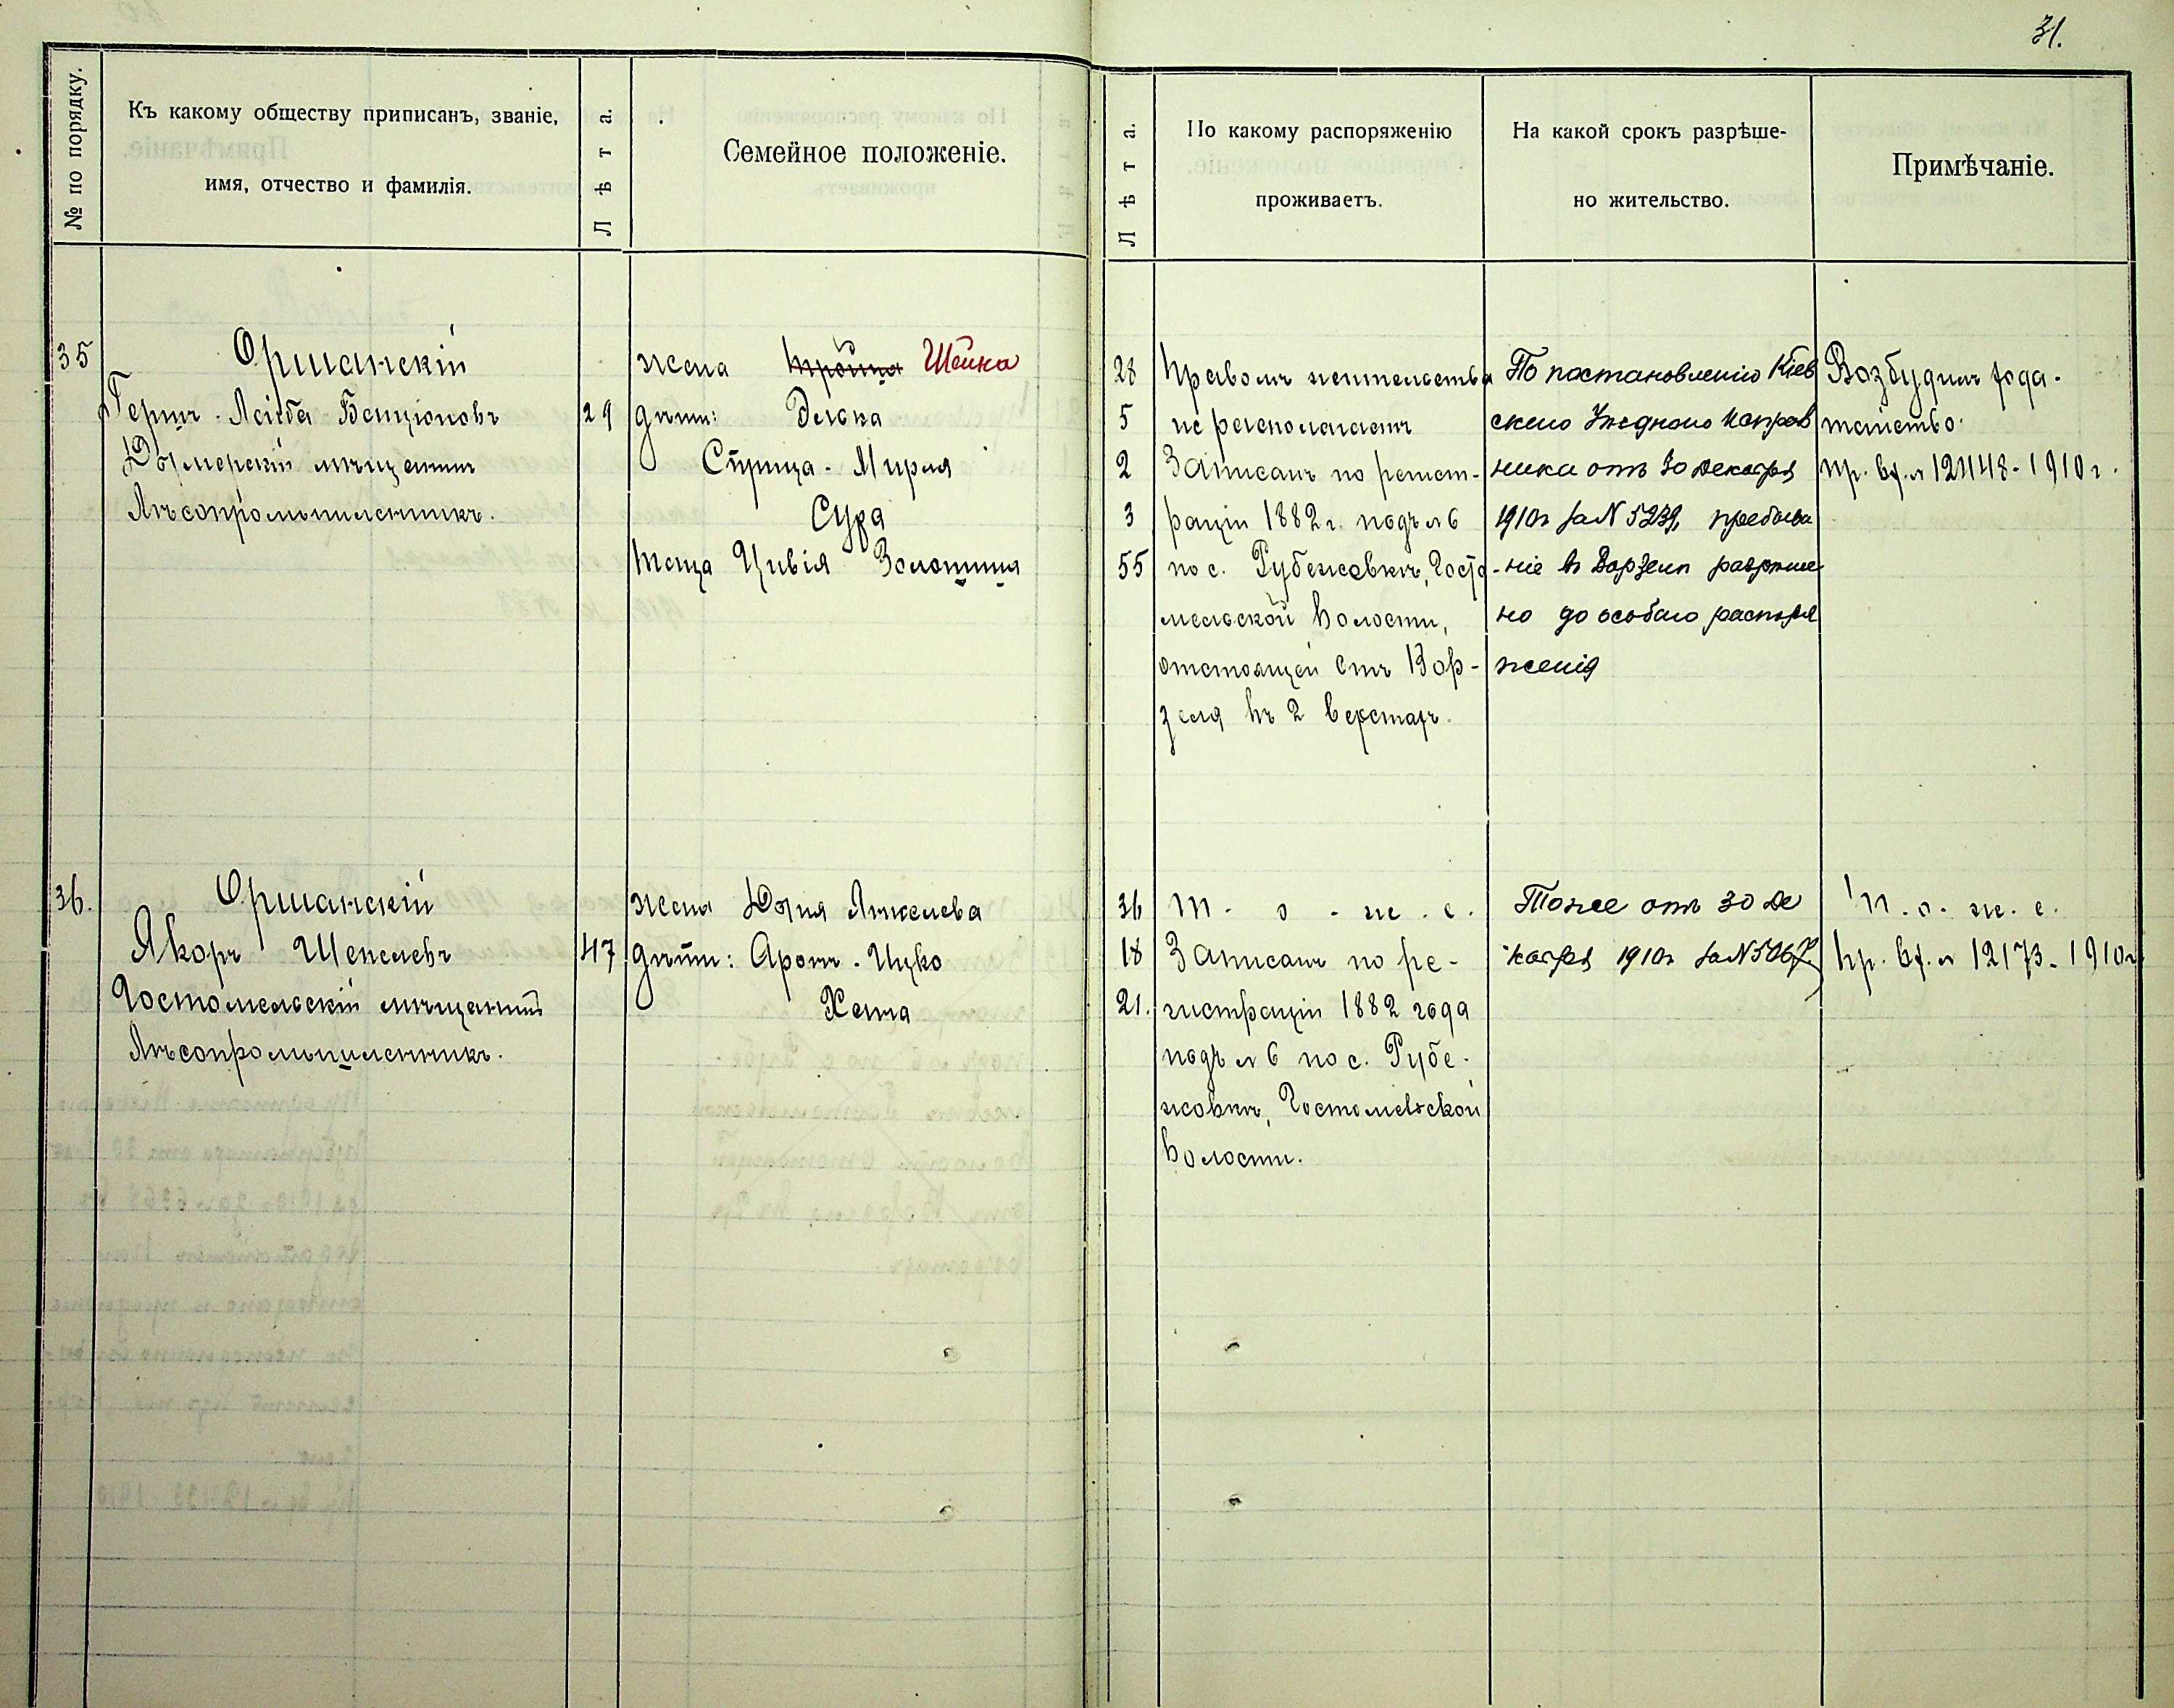 31.
№ по порядку.
Къ какому обществу приписанъ, званіе,
имя, отчество и фамилія.
Лѣта.
Семейное положеніе.
Лѣта.
По какому распоряженію
проживаетъ.
На какой срокъ разрѣше-
но жительство.
Примѣчаніе.
35
Оршанскій
Гершъ-Лейба Бенціоновъ
Дымерскій мѣщанинъ
Лѣсопромышленникъ.
29
жена Шейка
дѣти: Элька
Стрица-Мирля
Сура
теща Цивія
28
5
2
3
55
Правомъ жительства
не располагаетъ
Записанъ по регист-
раціи 1882 г. подъ № 6
по с. Рубежовкѣ, Госто-
мельской волости,
отстоящей отъ Вор-
зеля въ 2 верстахъ.
По постановленію Кіев
скаго Уѣзднаго Исправ
ника отъ 30 декабря
1910 г за № 5239, пребыва
-ніе въ Ворзелѣ разрѣше
но до особаго распоря
женія
Возбудилъ хода-
тайство.
пр. вх. № 12448-1910 г.
36.
Оршанскій
Яковъ Шепселевъ
Гостомельскій мѣщанинъ
Лѣсопромышленникъ.
47
жена Янкелева
дѣти: Аронъ-Ицко
36
18
21.
т-о-ж-е.
Записанъ по ре-
гистраціи 1882 года
подъ № 6 по с. Рубе-
жовкѣ, Гостомельской
волости.
Тоже отъ 30 де
кабря 1910 г за №
т.о.ж.е.
пр. вх. № 12173-1910 г.